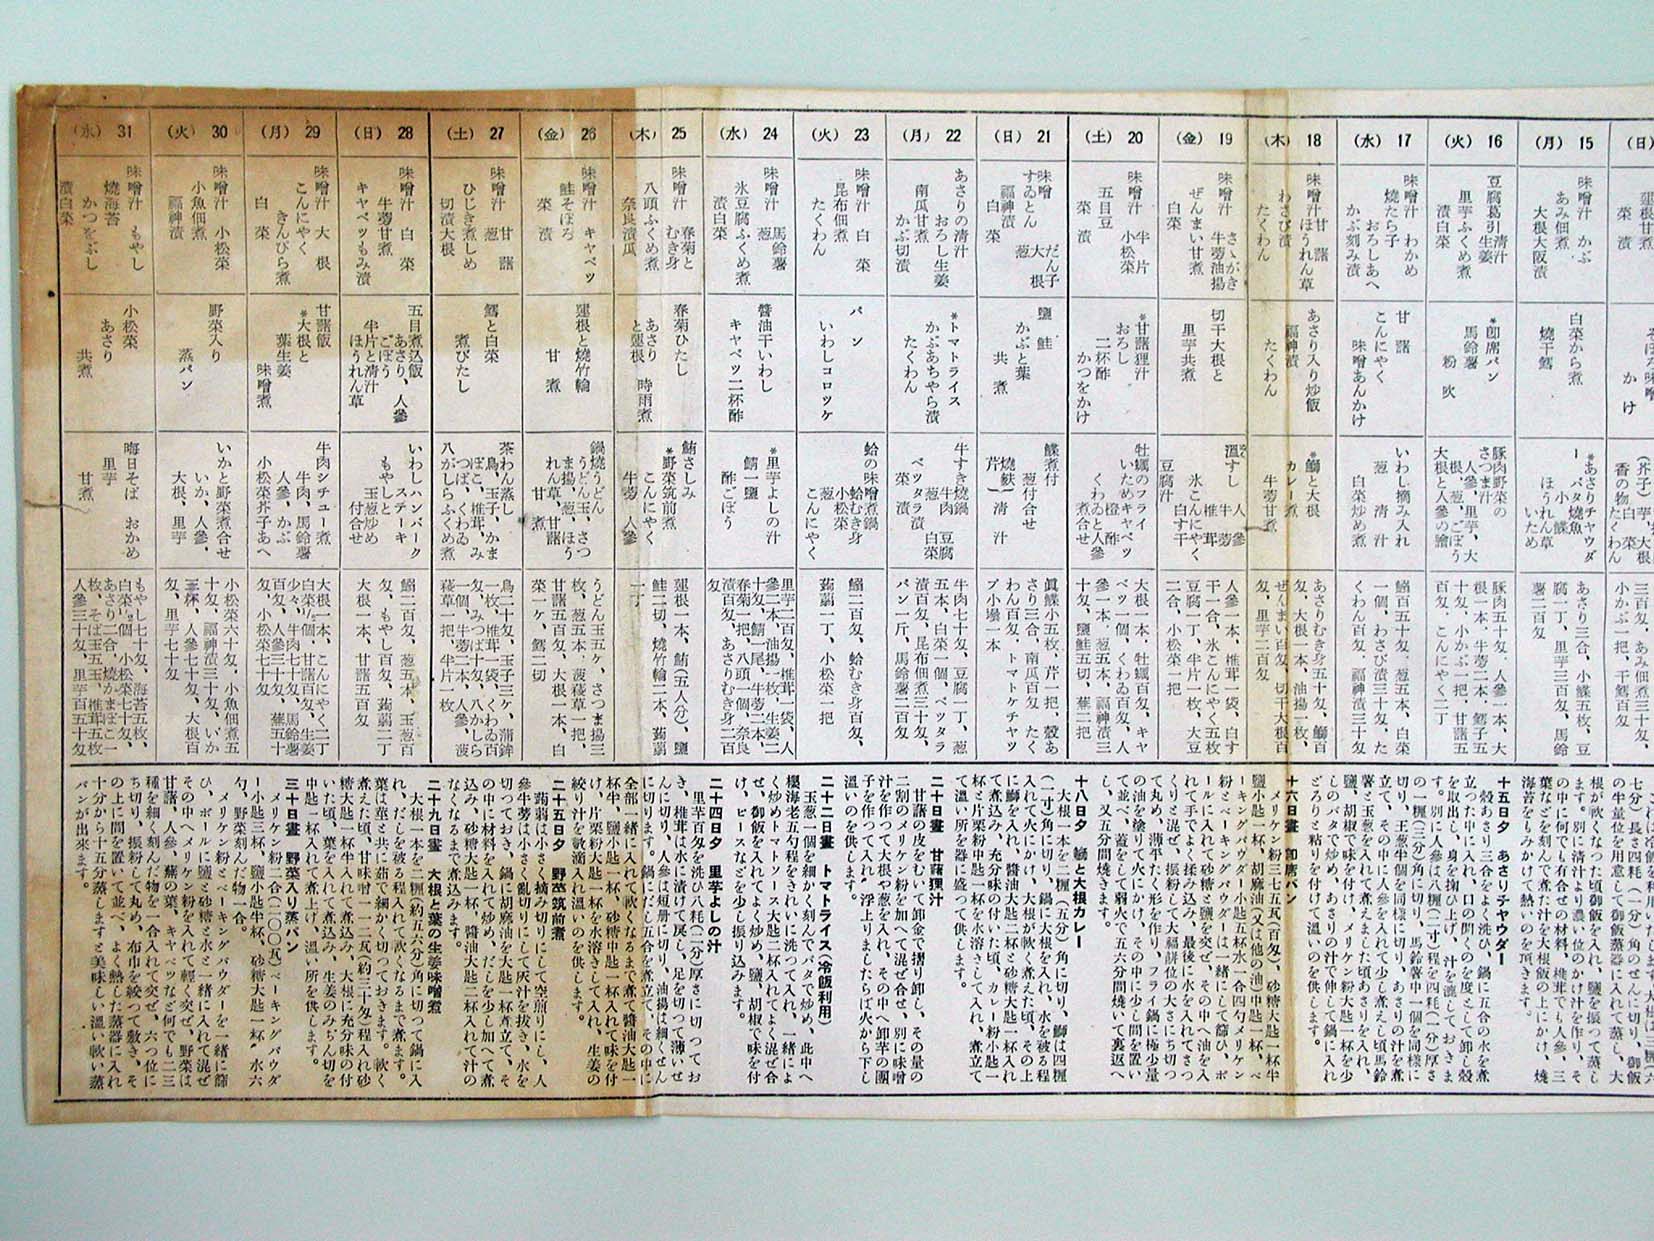 (日)
15 (月)
味噌汁 かぶ
あみ佃煮
大根大阪漬
白菜から煮
燒干鱈
*あさりチヤウダ
ー
バタ燒魚
小鰈
ほうれん草
いため
あさり三合、小鰈五枚、豆
腐一丁、里芋三百匁、馬鈴
薯二百匁
16 (火)
豆腐葛引清汁
生姜
里芋ふくめ煮
漬白菜
*卽席パン
馬鈴薯
粉吹
豚肉野菜の
さつま汁
人參、里芋、大
根、葱、ごぼう
大根と人參の膾
豚肉五十匁、人參一本、大
根一本、牛蒡二本、鱈子五
十匁、小かぶ一把、甘藷五
百匁、こんにやく二丁
17 (水)
味噌汁 わかめ
燒たら子
おろしあへ
かぶ刻み漬
甘藷
こんにやく
味噌あんかけ
いわし摘み入れ
葱 清汁
白菜炒め煮
鰯百五十匁、葱五本、白菜
一個、わさび漬三十匁、た
くわん百匁、福神漬三十匁
18 (木)
味噌汁 甘藷
ほうれん草
わさび漬
たくわん
あさり入り炒飯
福神漬
たくわん
*鰤と大根
カレー煮
牛蒡甘煮
あさりむき身五十匁、鰤百
匁、大根一本、油揚一枚、
ぜんまい百匁、切干大根百
匁、里芋二百匁
19 (金)
味噌汁 さゝがき
牛蒡油揚
ぜんまい甘煮
白菜
切干大根と
里芋共煮
溫ずし
人參
牛蒡
椎茸
氷こんにやく
白す干
豆腐汁
人參一本、椎茸一袋、白す
干一合、氷こんにやく五枚
豆腐一丁、牛片一枚、大豆
二合、小松菜一把
20 (土)
味噌汁 牛片
小松菜
五目豆
菜漬
*甘藷狸汁
おろし
二杯酢
かつをかけ
牡蠣のフライ
いためキャベツ
橙酢
くわゐと人參
煮合せ
大根一本、牡蠣百匁、キャ
ベツ一個、くわゐ百匁、人
參一本、葱五本、福神漬三
十匁、鹽鮭五切、蕪二把
21 (日)
味噌 だん子
すゐとん 大根
葱
福神漬
白菜
鹽鮭
かぶと葉
共煮
鰈煮付
葱付合せ
燒麩
芹 清汁
眞鰈小五枚、芹一把、殼あ
さり三合、南瓜百匁、たく
わん百匁、トマトケチヤツ
プ小壜一本
22 (月)
あさりの清汁
おろし生姜
南瓜甘煮
かぶ切漬
*トマトライス
かぶあちやら漬
たくわん
牛すき燒鍋
牛肉 豆腐
葱 白菜
ベツタラ漬
菜漬
牛肉七十匁、豆腐一丁、葱
五本、白菜一個、ベツタラ
漬百匁、昆布佃煮三十匁、
パン一斤、馬鈴薯二百匁
23 (火)
味噌汁 白菜
昆布佃煮
たくわん
パン
いわしコロツケ
蛤の味噌煮鍋
蛤むき身
葱 小松菜
こんにやく
鰯二百匁、蛤むき身百匁、
蒟蒻一丁、小松菜一把
24 (水)
味噌汁 馬鈴薯
葱
氷豆腐ふくめ煮
漬白菜
醬油干いわし
キャベツ二杯酢
*里芋よしの汁
鯖一鹽
酢ごぼう
里芋二百匁、椎茸一袋、人
參二本、油揚一枚、生姜二
十匁、鯖一尾、牛蒡二本、
春菊一把、八頭一個、奈良
漬百匁、あさりむき身二百
匁
25 (木)
味噌汁 春菊と
むき身
八頭ふくめ煮
奈良漬瓜
春菊ひたし
あさり
と蓮根 時雨煮
鮪さしみ
*野菜筑前煮
こんにやく
牛蒡 人參
蓮根一本、鮪(五人分)、鹽
鮭二切、燒竹輪二本、蒟蒻
一丁
26 (金)
味噌汁 キャベツ
鮭そぼろ
菜漬
蓮根と燒竹輪
甘煮
鍋燒うどん
うどん玉、さつ
ま揚、葱、ほう
れん草、甘藷
甘煮
うどん玉五ヶ、さつま揚三
枚、葱五本、菠薐草一把、
甘藷五百匁、大根一本、白
菜一ケ、鱈二切
27 (土)
味噌汁 甘藷
葱
ひじき煮しめ
切漬大根
鱈と白菜
煮びたし
茶わん蒸し
鳥、玉子、かま
ぼこ、椎茸、み
つば、くわゐ
八がしらふくめ煮
鳥二十匁、玉子三ヶ、蒲鉾
一枚、椎茸一袋、くわゐ百
匁、みつば十匁、八かしら
一個、牛蒡二本、人參、菠
薐草一把、牛片一枚
28 (日)
味噌汁 白菜
牛蒡甘煮
キャベツもみ漬
五目煮込飯
あさり、人參
ごぼう
牛片と清汁
ほうれん草
いわしハンバーク
ステーキ
玉葱炒め
もやしと
付合せ
鰯二百匁、葱五本、玉葱百
匁、もやし百匁、蒟蒻二丁
大根一本、甘藷五百匁
29 (月)
味噌汁 大根
こんにやく
きんぴら煮
白菜
甘藷飯
*大根と
葉生姜
味噌煮
牛肉シチユー煮
牛肉、馬鈴薯
人參、かぶ
小松菜芥子あへ
大根一本、こんにやく二丁
白菜½個、甘藷百匁、生姜
少々、牛肉七十匁、馬鈴薯
百匁、人參三十匁、蕪五十
匁、小松菜七十匁
30 (火)
味噌汁 小松菜
小魚佃煮
福神漬
野菜入り
蒸パン
いかと野菜煮合せ
いか、人參、
大根、里芋
小松菜六十匁、小魚佃煮五
十匁、福神漬三十匁、いか
三杯、人參七十匁、大根百
匁、里芋七十匁
31 (水)
味噌汁 もやし
燒海苔
かつをぶし
漬白菜
小松菜
あさり
共煮
晦日そば おかめ
里芋
甘煮
もやし七十匁、海苔五枚、
白菜½個、小松菜七十匁、
あさり二合、燒かまぼこ一
枚、そば玉五玉、椎茸五枚
人參三十匁、里芋百五十匁
十五日夕 あさりチヤウダー
殼あさり三合をよく洗ひ、鍋に五合の水を煮
立つた中に入れ、口の開くのを度として卸し殼
を取出し、身を掬ひ上げ、汁を漉しておきま
す。別に人參は八糎(二寸)程を四粍(一分)厚さ
の一糎(三分)角に切り、馬鈴薯中一個を同樣に
切り、玉葱半個を同樣に切り、あさりの汁を煮
立て、その中に人參を入れて少し煮えし頃馬鈴
薯と玉葱を入れて煮えました頃あさりを入れ、
鹽、胡椒で味を付け、メリケン粉大匙一杯を少
しのバタで炒め、あさりの汁で伸して鍋に入れ
どろりと粘りを付けて溫いのを供します。
十六日晝 卽席パン
メリケン粉三七五瓦(百匁)、砂糖大匙一杯半
鹽小匙一杯、胡麻油(又は他の油)中匙一杯、ベ
ーキングパウダー小匙五杯水一合四勺メリケン
粉とベーキングパウダーは一緒にして篩ひ、ボ
ールに入れて砂糖と鹽を交ぜ、その中へ油を入
れて手でよく揉み込み、最後に水を入れてさつ
くりと混ぜ、振粉して大福餠位の大さにち切つ
て丸め、薄平たく形を作り、フライ鍋に極少量
の油を塗り火にかけ、その中に少し間を置い
て並べ、蓋をして弱火で五六分間燒いて裏返へ
し、又五分間燒きます。
十八日夕 鰤と大根カレー
大根一本を二糎(五分)角に切り、鰤は四糎
(一寸)角に切り、鍋に大根を入れ、水を被る程
入れて火にかけ、大根が軟く煮えた頃、その上
に鰤を入れ、醬油大匙二杯と砂糖大匙一杯入れ
て煮込み、充分味の付いた頃、カレー粉小匙一
杯と片栗粉中匙一杯を水溶きして入れ、煮立て
て溫い所を器に盛つて供します。
二十日晝 甘藷狸汁
甘藷の皮をむいて卸金で摺り卸し、その量の
二割のメリケン粉を加へて混ぜ合せ、別に味噌
汁を作つて大根や葱を入れ、その中へ卸芋の團
子を作つて入れ、浮上りましたらば火から下し
溫いのを供します。
二十二日晝 トマトライス(冷飯利用)
玉葱一個を細かく刻んでバタで炒め、此中へ
櫻海老五勺程をきれいに洗つて入れ、一緒によ
く炒めトマトソース大匙二杯入れてよく混ぜ合
せ、御飯を入れてよく炒め、鹽、胡椒で味を付
け、ピースなどを少し振り込みます。
二十四日夕 里芋よしの汁
里芋百匁を洗ひ八粍(二分)厚さに切つてお
き、椎茸は水に漬けて戾し、足を切つて薄いせ
んに切り、人參は短册に切り、油揚は細くせん
に切ります。鍋にだし五合を煮立て、その中に
全部一緒に入れて軟くなるまで煮て醬油大匙一
杯半、鹽小匙一杯、砂糖中匙一杯入れて味を付
け、片栗粉大匙一杯を水溶きして入れ、生姜の
絞り汁を數滴入れて溫いのを供します。
二十五日夕 野菜筑前煮
蒟蒻は小さく摘み切りにして空煎りにし、人
參牛蒡は小さく亂切りにして灰汁を拔き、水を
切つておき、鍋に胡麻油を大匙一杯煮立て、そ
の中に材料を入れて炒め、だしを少し加へて煮
込み、砂糖大匙一杯、醬油大匙二杯入れて汁の
なくなるまで煮込みます。
二十九日晝 大根と葉の生姜味噌煮
大根一本を二糎(約五六分)角に切つて鍋に入
れ、だしを被る程入れて軟くなるまで煮ます。
葉は莖と共に茹で細かく切つておきます。軟く
煮えた頃、甘味噌一一二瓦(約三十匁)程入れ砂
糖大匙一杯半入れて煮込み、大根に充分味の付
いた頃、葉を入れて煮込み、生姜のみぢん切を
中匙一杯入れて煮上げ、溫い所を供します。
三十日晝 野菜入り蒸パン
メリケン粉二合(二〇〇瓦)ベーキングパウダ
ー小匙三杯、鹽小匙半杯、砂糖大匙一杯、水六
勺、野菜刻んだ物一合。
メリケン粉とベーキングパウダーを一緒に篩
ひ、ボールに鹽と砂糖と水と一緒に入れて混ぜ
その中へメリケン粉を入れて輕く突ぜ、野菜は
甘藷、人參、蕪の葉、キャベツなど何でも二三
種を細く刻んだ物を一合入れて交ぜ、六つ位に
ち切り、振粉して丸め、布巾を絞つて敷き、そ
の上に間を置いて並べ、よく熱した蒸器に入れ
十分から十五分蒸しますと美味しい溫い軟い蒸
パンが出來ます。